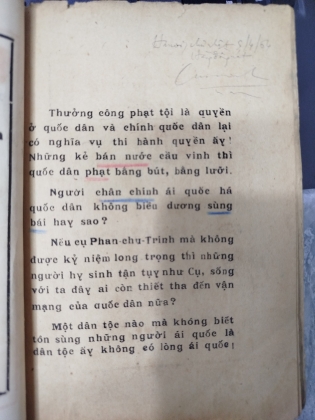 Thưởng công phạt tội là quyền
ở quốc dân và chính quốc dân lại
có nghĩa vụ thi hành quyền ấy!
Những kẻ bán nước cầu vinh thì
quốc dân phạt bằng bút, bằng lưỡi.
Người chân chính ái quốc há
quốc dân không biểu dương sùng
bái hay sao?
Nếu cụ Phan-chu-Trinh mà không
được kỷ niệm long trọng thì những
người hy sinh tận tụy như Cụ, sống
với ta đây ai còn thiết tha đến vận
mạng của quốc dân nữa?
Một dân tộc nào mà không biết
tôn sùng những người ái quốc là
dân tộc ấy không có lòng ái quốc!